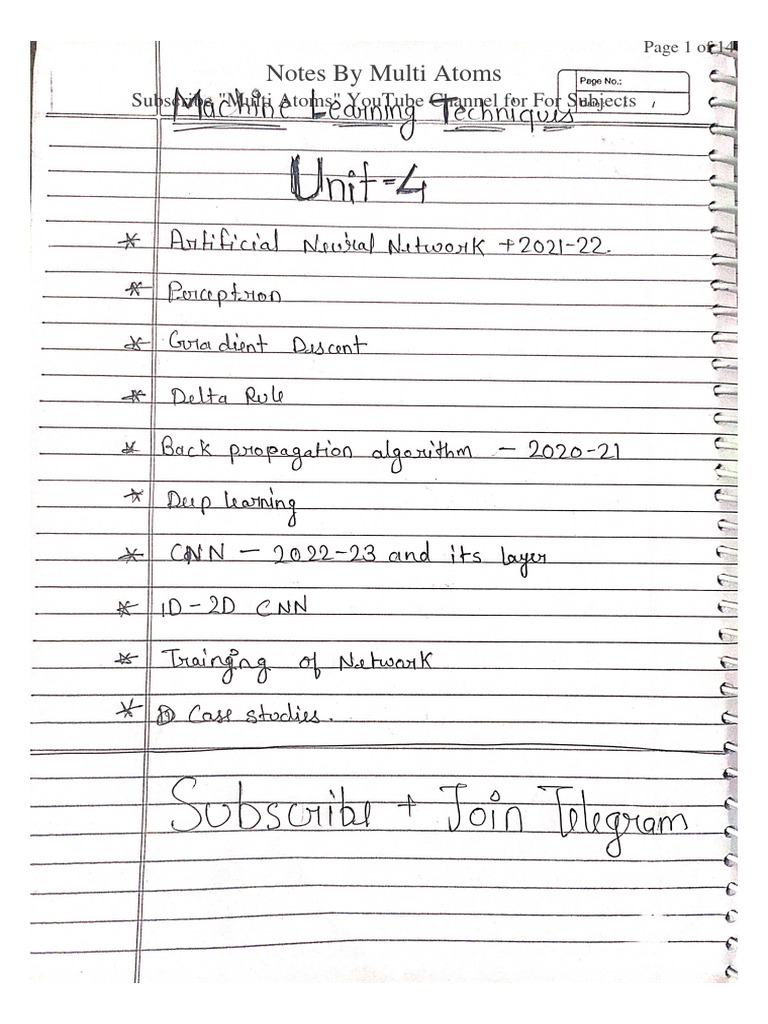 Page 1 of 14
Notes By Multi Atoms
Page No.:
Subscribe "Multi Atoms" YouTube Channel for For Subjects
Machine Learning Techniques
Unit-4
* Artificial Neural Network + 2021-22.
* Perceptron
* Gradient Descent
* Delta Rule
* Back propagation algorithm - 2020-21
* Deep learning
* CNN - 2022-23 and its layer
* 1D-2D CNN
* Trainging of Network
* Case studies.
Subscribe + Join Telegram